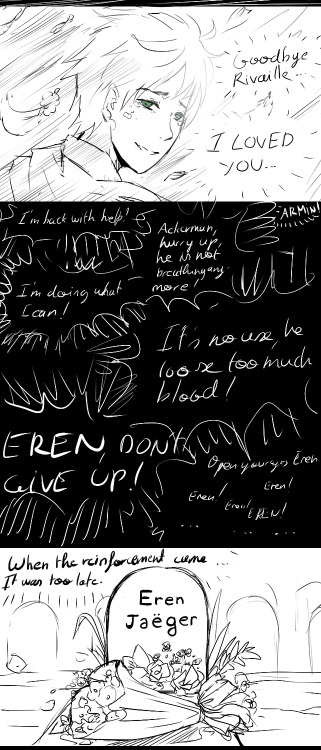 Goodbye
Rivaille...
I LOVED
YOU...
I'm back with help!
Ackerman,
hurry up,
he is not
breathing any-
more
-ARMIN!
I'm doing what
I can!
It's no use, he
loose too much
blood!
EREN, DON'T
GIVE UP!
Open your eyes Eren
Eren!
Eren!
Eren!
EREN!
... ...
When the reinforcement came ...
It was too late.
Eren
Jaëger